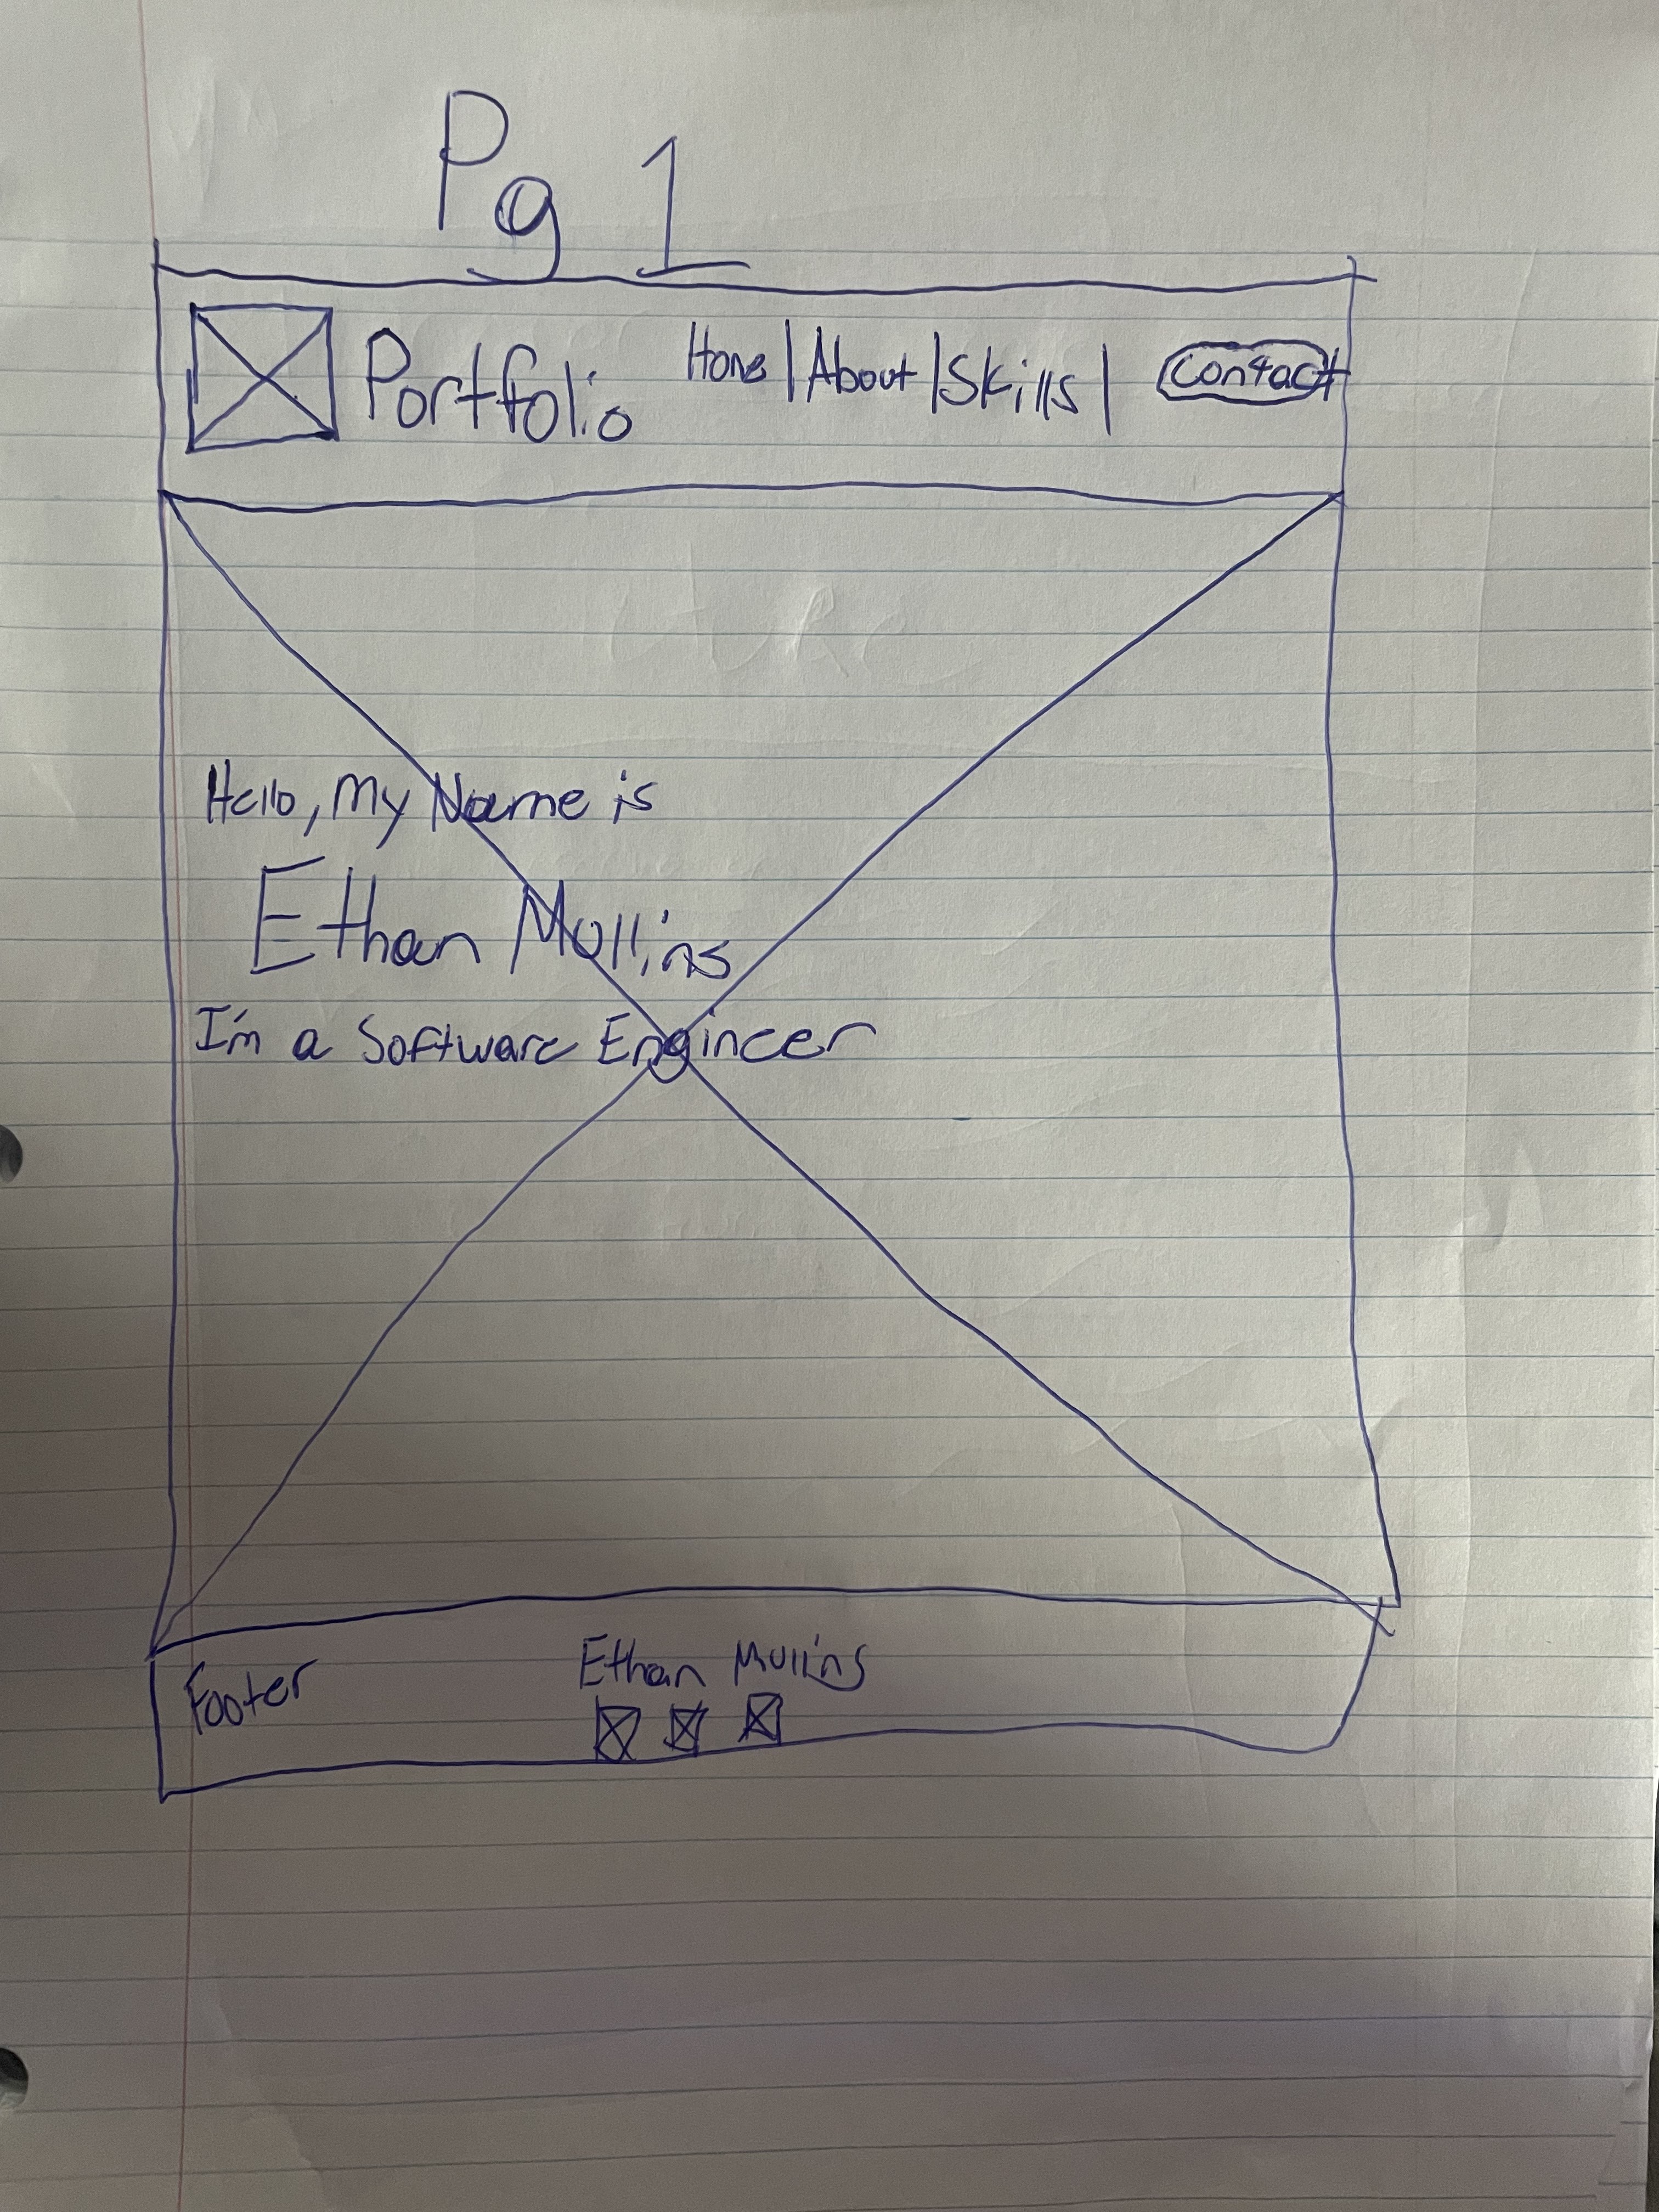 Pg 1
Portfolio Home | About | Skills | Contact
Hello, My Name is
Ethan Mullins
I'm a Software Engineer
Footer
Ethan Mullins